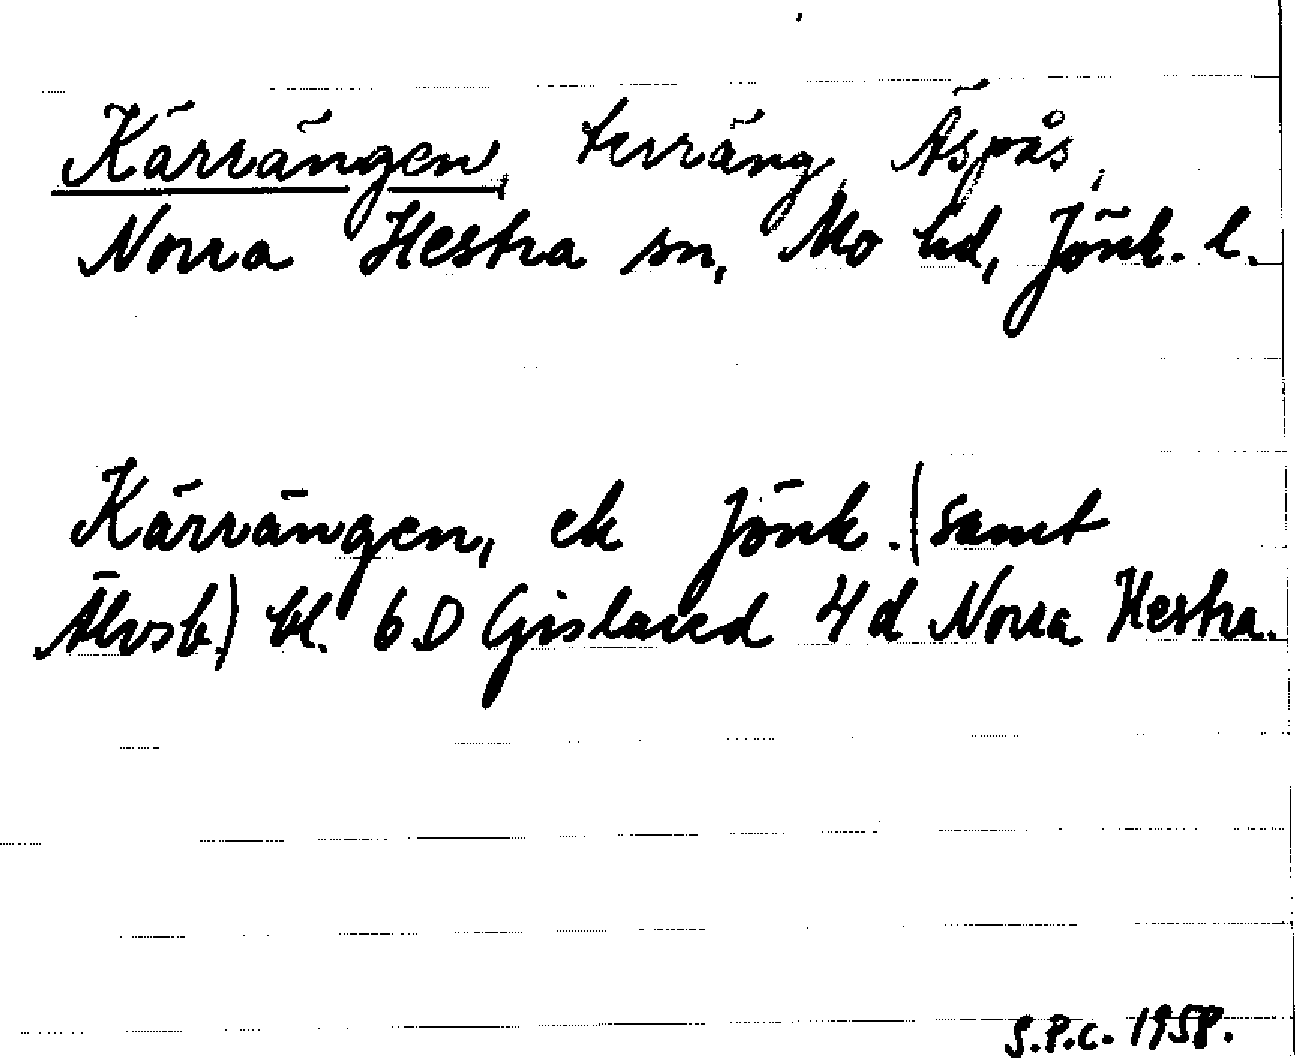 Kärrängen, terräng, Äspås,
Norra Hestra sn, Mo hd, Jönk. l.
Kärrängen, ek Jönk. (samt
Älvsb.) bl. 6D Gislaved 4d Norra Hestra.
S.P.C. 1958.